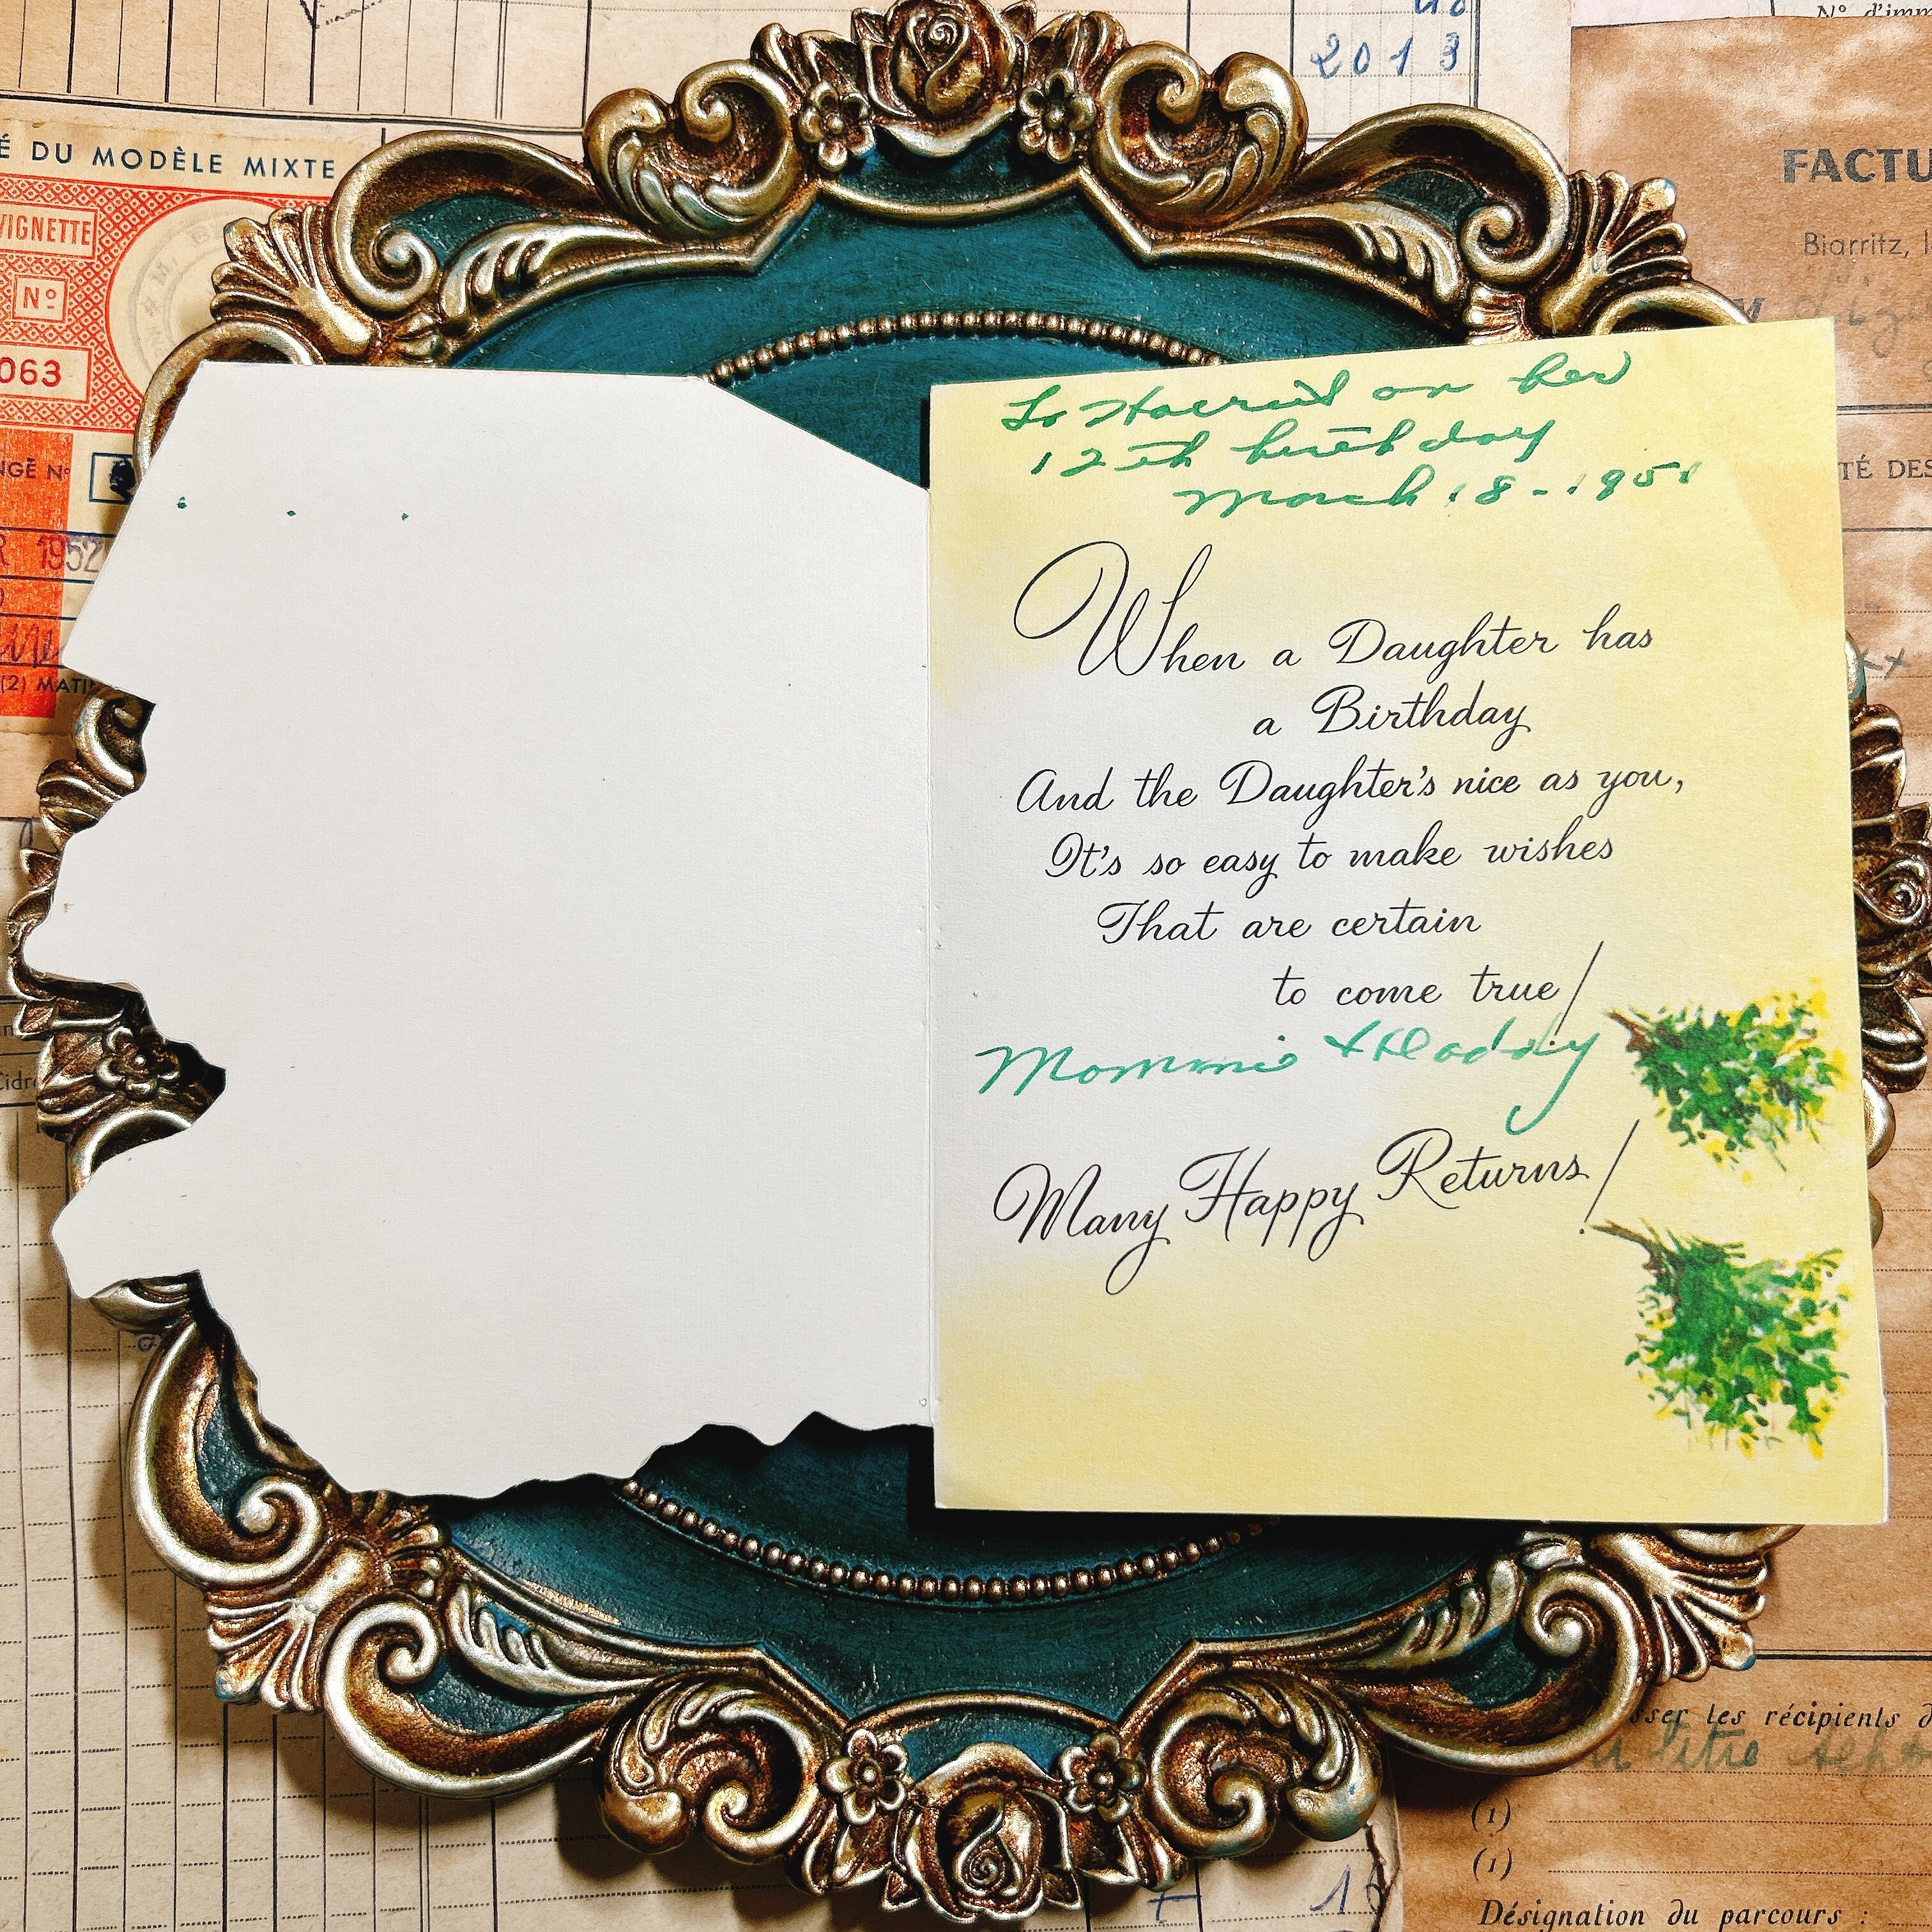 2013
N° d'imm
É DU MODÈLE MIXTE
VIGNETTE
N°
063
NGÉ N°
R 1952
(2) MATI
FACTU
Biarritz, l
TÉ DES
To Harriet on her
12th birthday
March 18-1951
When a Daughter has
a Birthday
And the Daughter's nice as you,
It's so easy to make wishes
That are certain
to come true!
Mommie & Daddy
Many Happy Returns!
Cidr
sser les récipients d
litre
(1)
(1)
Désignation du parcours :
16